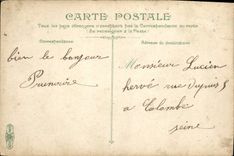 CARTE POSTALE
Tous les pays étrangers n'acceptent pas la Correspondance au verso
(Se renseigner à la Poste)
Correspondance
Adresse du destinataire
bien le bonjour
Monsieur Lucien
hervé rue
a Colombe
seine